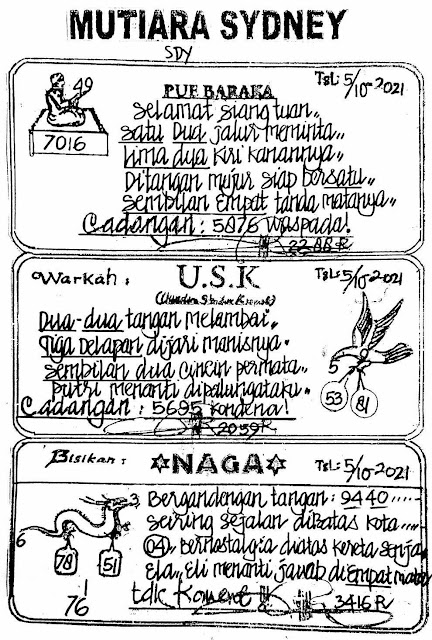 MUTIARA SYDNEY
SDY
PUE BARAKA
TgL: 5/10-2021
49
7016
Selamat siang tuan,,
satu Dua jalur meminta,,
Lima dua kiri kanannya,,
Ditangan mujur siap bersatu,,
Sembilan Empat tanda matanya,,
Cadangan: 5876 waspada!
2288 R
Warkah:
U.S.K
TgL: 5/10-2021
Dua-dua tangan melambai,
Tiga Delapan dijari manisnya.
Sembilan dua cincin permata,
Putri menanti dipelungataku.
Cadangan: 5695 Kondena!
2059 R
5
53
81
Bisikan:
NAGA
TgL: 5/10-2021
Bergandengan tangan: 9440.....
Seiring sejalan diBatas kota.....
04, Bernostalgia diatas kereta senja,
Ela,, Eli menanti jawab di Empat mata
tdk
3416 R
3
6
78
51
76